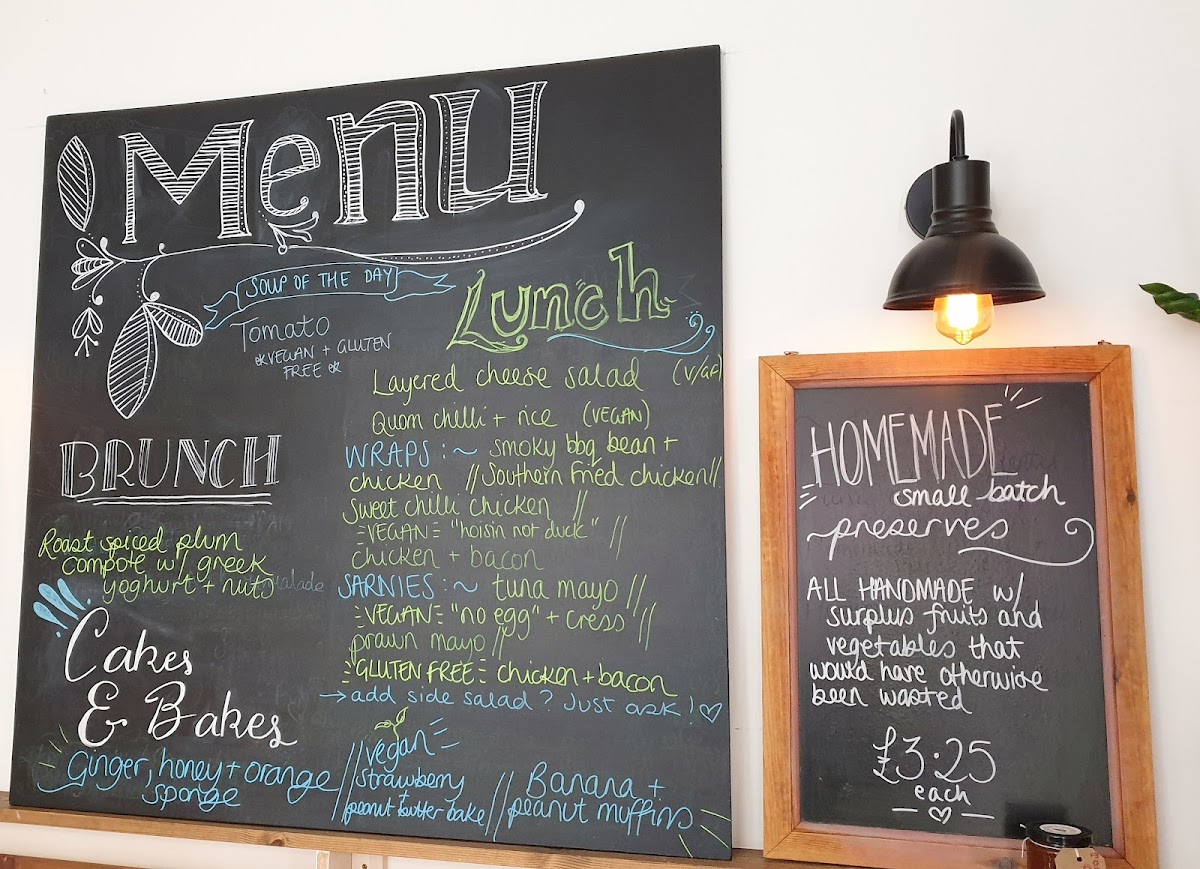 Menu
SOUP OF THE DAY
Tomato
VEGAN + GLUTEN
FREE
BRUNCH
Roast spiced plum
compote w/ greek
yoghurt + nuts
Cakes
& Bakes
Ginger, honey + orange
sponge
//vegan
strawberry
+
peanut butter cake
// Banana +
peanut muffins
Lunch
Layered cheese salad (V/GF)
Quorn chilli + rice (VEGAN)
WRAPS :~ smoky bbq bean +
chicken //Southern fried chicken//
Sweet chilli chicken //
VEGAN "hoisin not duck" //
chicken + bacon
SARNIES :~ tuna mayo //
VEGAN "no egg" + cress //
prawn mayo //
GLUTEN FREE chicken + bacon
→ add side salad? Just ask! ♡
HOMEMADE
small batch
preserves
ALL HANDMADE w/
surplus fruits and
vegetables that
would have otherwise
been wasted
£3.25
each
♡